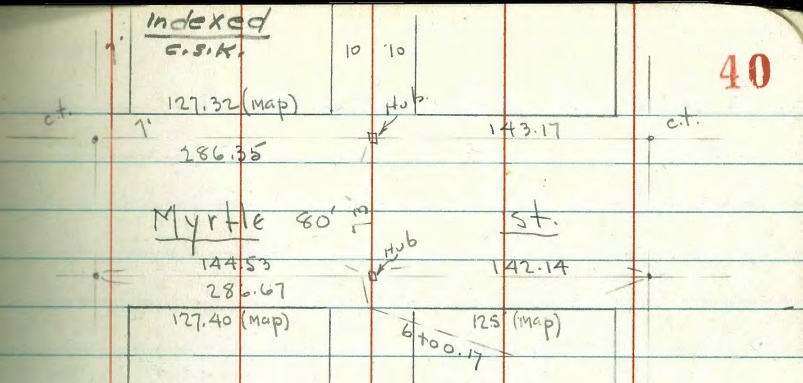 Indexed
C.S.K.
7'
10 10
40
127.32 (map)
Hub
c.t.
7'
143.17
c.t.
286.35
Myrtle 80' St.
Hub
144.53
142.14
286.67
127.40 (map)
125' (map)
6+00.17